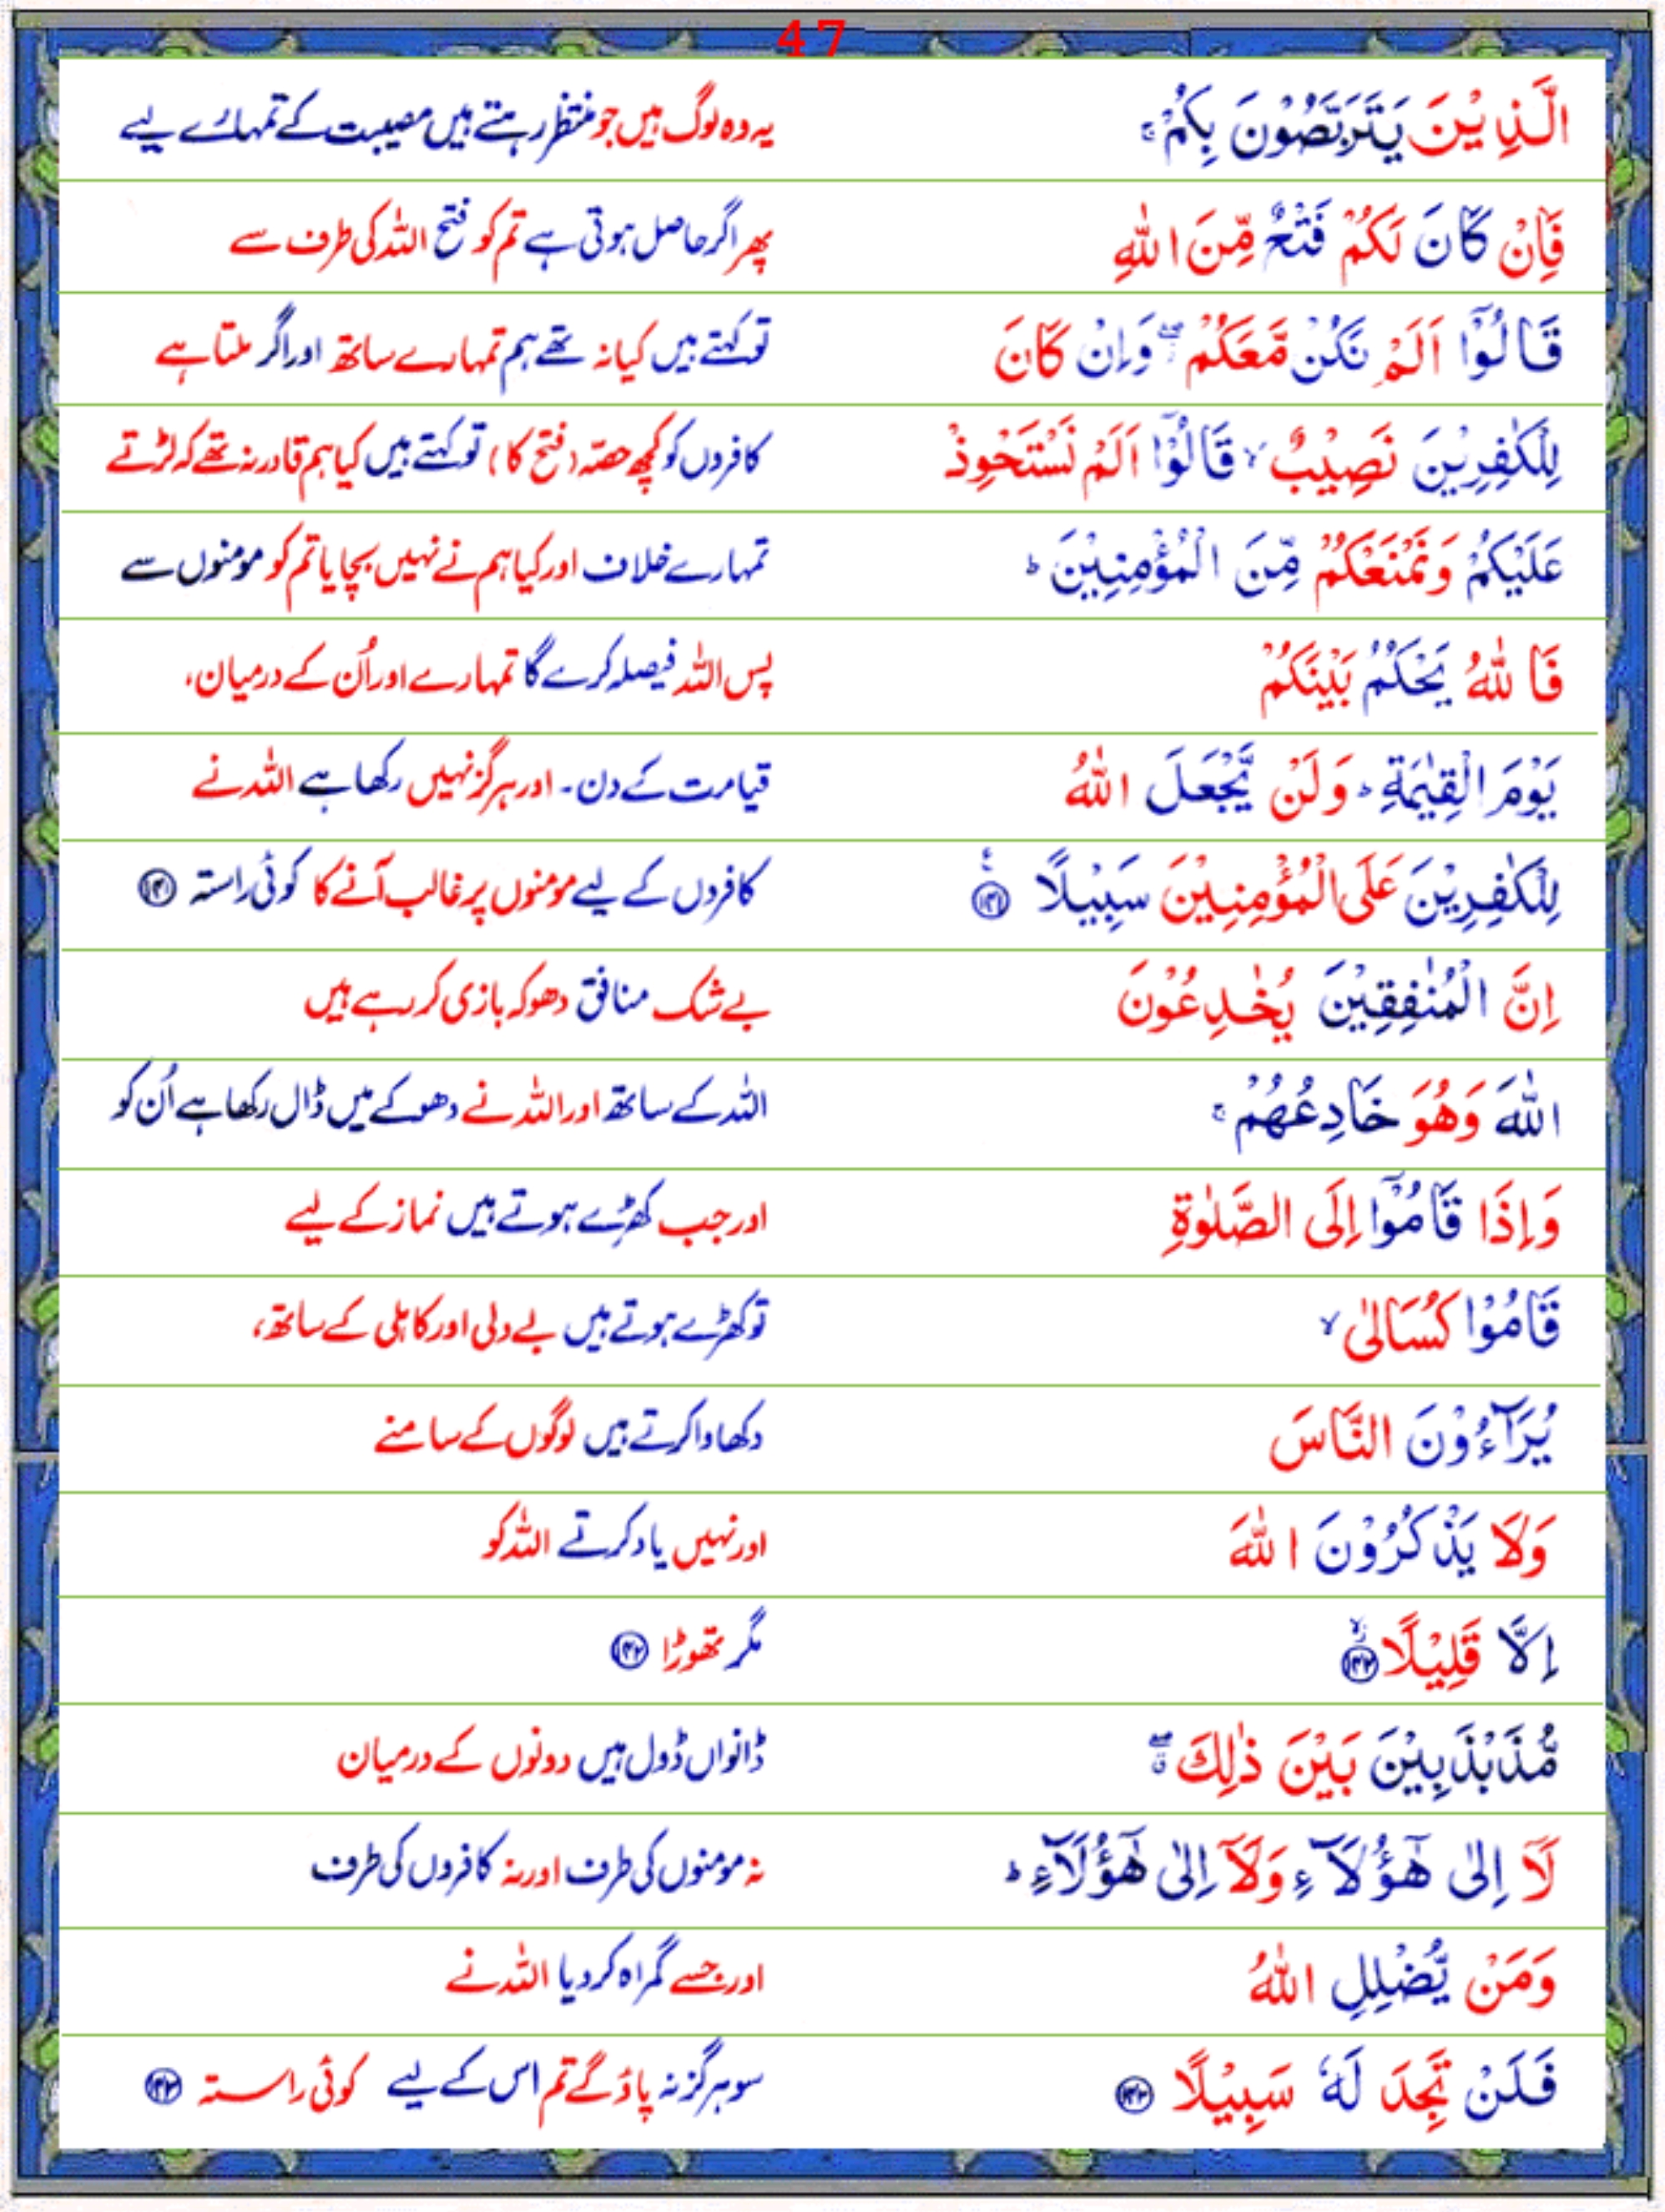 47
الَّذِيْنَ يَتَرَبَّصُوْنَ بِكُمْ ۚ یہ وہ لوگ ہیں جو منتظر رہتے ہیں مصیبت کے تمہارے لیے
فَاِنْ كَانَ لَكُمْ فَتْحٌ مِّنَ اللّٰهِ پھر اگر حاصل ہوتی ہے تم کو فتح اللہ کی طرف سے
قَالُوْٓا اَلَمْ نَكُنْ مَّعَكُمْ ۖ وَاِنْ كَانَ تو کہتے ہیں کیا نہ تھے ہم تمہارے ساتھ اور اگر ملتا ہے
لِلْكٰفِرِيْنَ نَصِيْبٌ ۙ قَالُوْٓا اَلَمْ نَسْتَحْوِذْ کافروں کو کچھ حصّہ (فتح کا) تو کہتے ہیں کیا ہم قادر نہ تھے کہ لڑتے
عَلَيْكُمْ وَنَمْنَعْكُمْ مِّنَ الْمُؤْمِنِيْنَ ؕ تمہارے خلاف اور کیا ہم نے نہیں بچایا تم کو مومنوں سے
فَاللّٰهُ يَحْكُمُ بَيْنَكُمْ پس اللہ فیصلہ کرے گا تمہارے اور اُن کے درمیان،
يَوْمَ الْقِيٰمَةِ ؕ وَلَنْ يَّجْعَلَ اللّٰهُ قیامت کے دن۔ اور ہرگز نہیں رکھا ہے اللہ نے
لِلْكٰفِرِيْنَ عَلَى الْمُؤْمِنِيْنَ سَبِيْلًا ۧ ﴿۱۴۱﴾ کافروں کے لیے مومنوں پر غالب آنے کا کوئی راستہ ﴿۱۴۱﴾
اِنَّ الْمُنٰفِقِيْنَ يُخٰدِعُوْنَ بے شک منافق دھوکہ بازی کر رہے ہیں
اللّٰهَ وَهُوَ خَادِعُهُمْ ۚ اللہ کے ساتھ اور اللہ نے دھوکے میں ڈال رکھا ہے اُن کو
وَاِذَا قَامُوْٓا اِلَى الصَّلٰوةِ اور جب کھڑے ہوتے ہیں نماز کے لیے
قَامُوْا كُسَالٰى ۙ تو کھڑے ہوتے ہیں بے دلی اور کاہلی کے ساتھ،
يُرَآءُوْنَ النَّاسَ دکھاوا کرتے ہیں لوگوں کے سامنے
وَلَا يَذْكُرُوْنَ اللّٰهَ اور نہیں یاد کرتے اللہ کو
اِلَّا قَلِيْلًا ۙ ﴿۱۴۲﴾ مگر تھوڑا ﴿۱۴۲﴾
مُّذَبْذَبِيْنَ بَيْنَ ذٰلِكَ ۖ ڈانواں ڈول ہیں دونوں کے درمیان
لَآ اِلٰى هٰٓؤُلَآءِ وَلَآ اِلٰى هٰٓؤُلَآءِ ؕ نہ مومنوں کی طرف اور نہ کافروں کی طرف
وَمَنْ يُّضْلِلِ اللّٰهُ اور جسے گمراہ کر دیا اللہ نے
فَلَنْ تَجِدَ لَهٗ سَبِيْلًا ﴿۱۴۳﴾ سو ہرگز نہ پاؤ گے تم اس کے لیے کوئی راستہ ﴿۱۴۳﴾